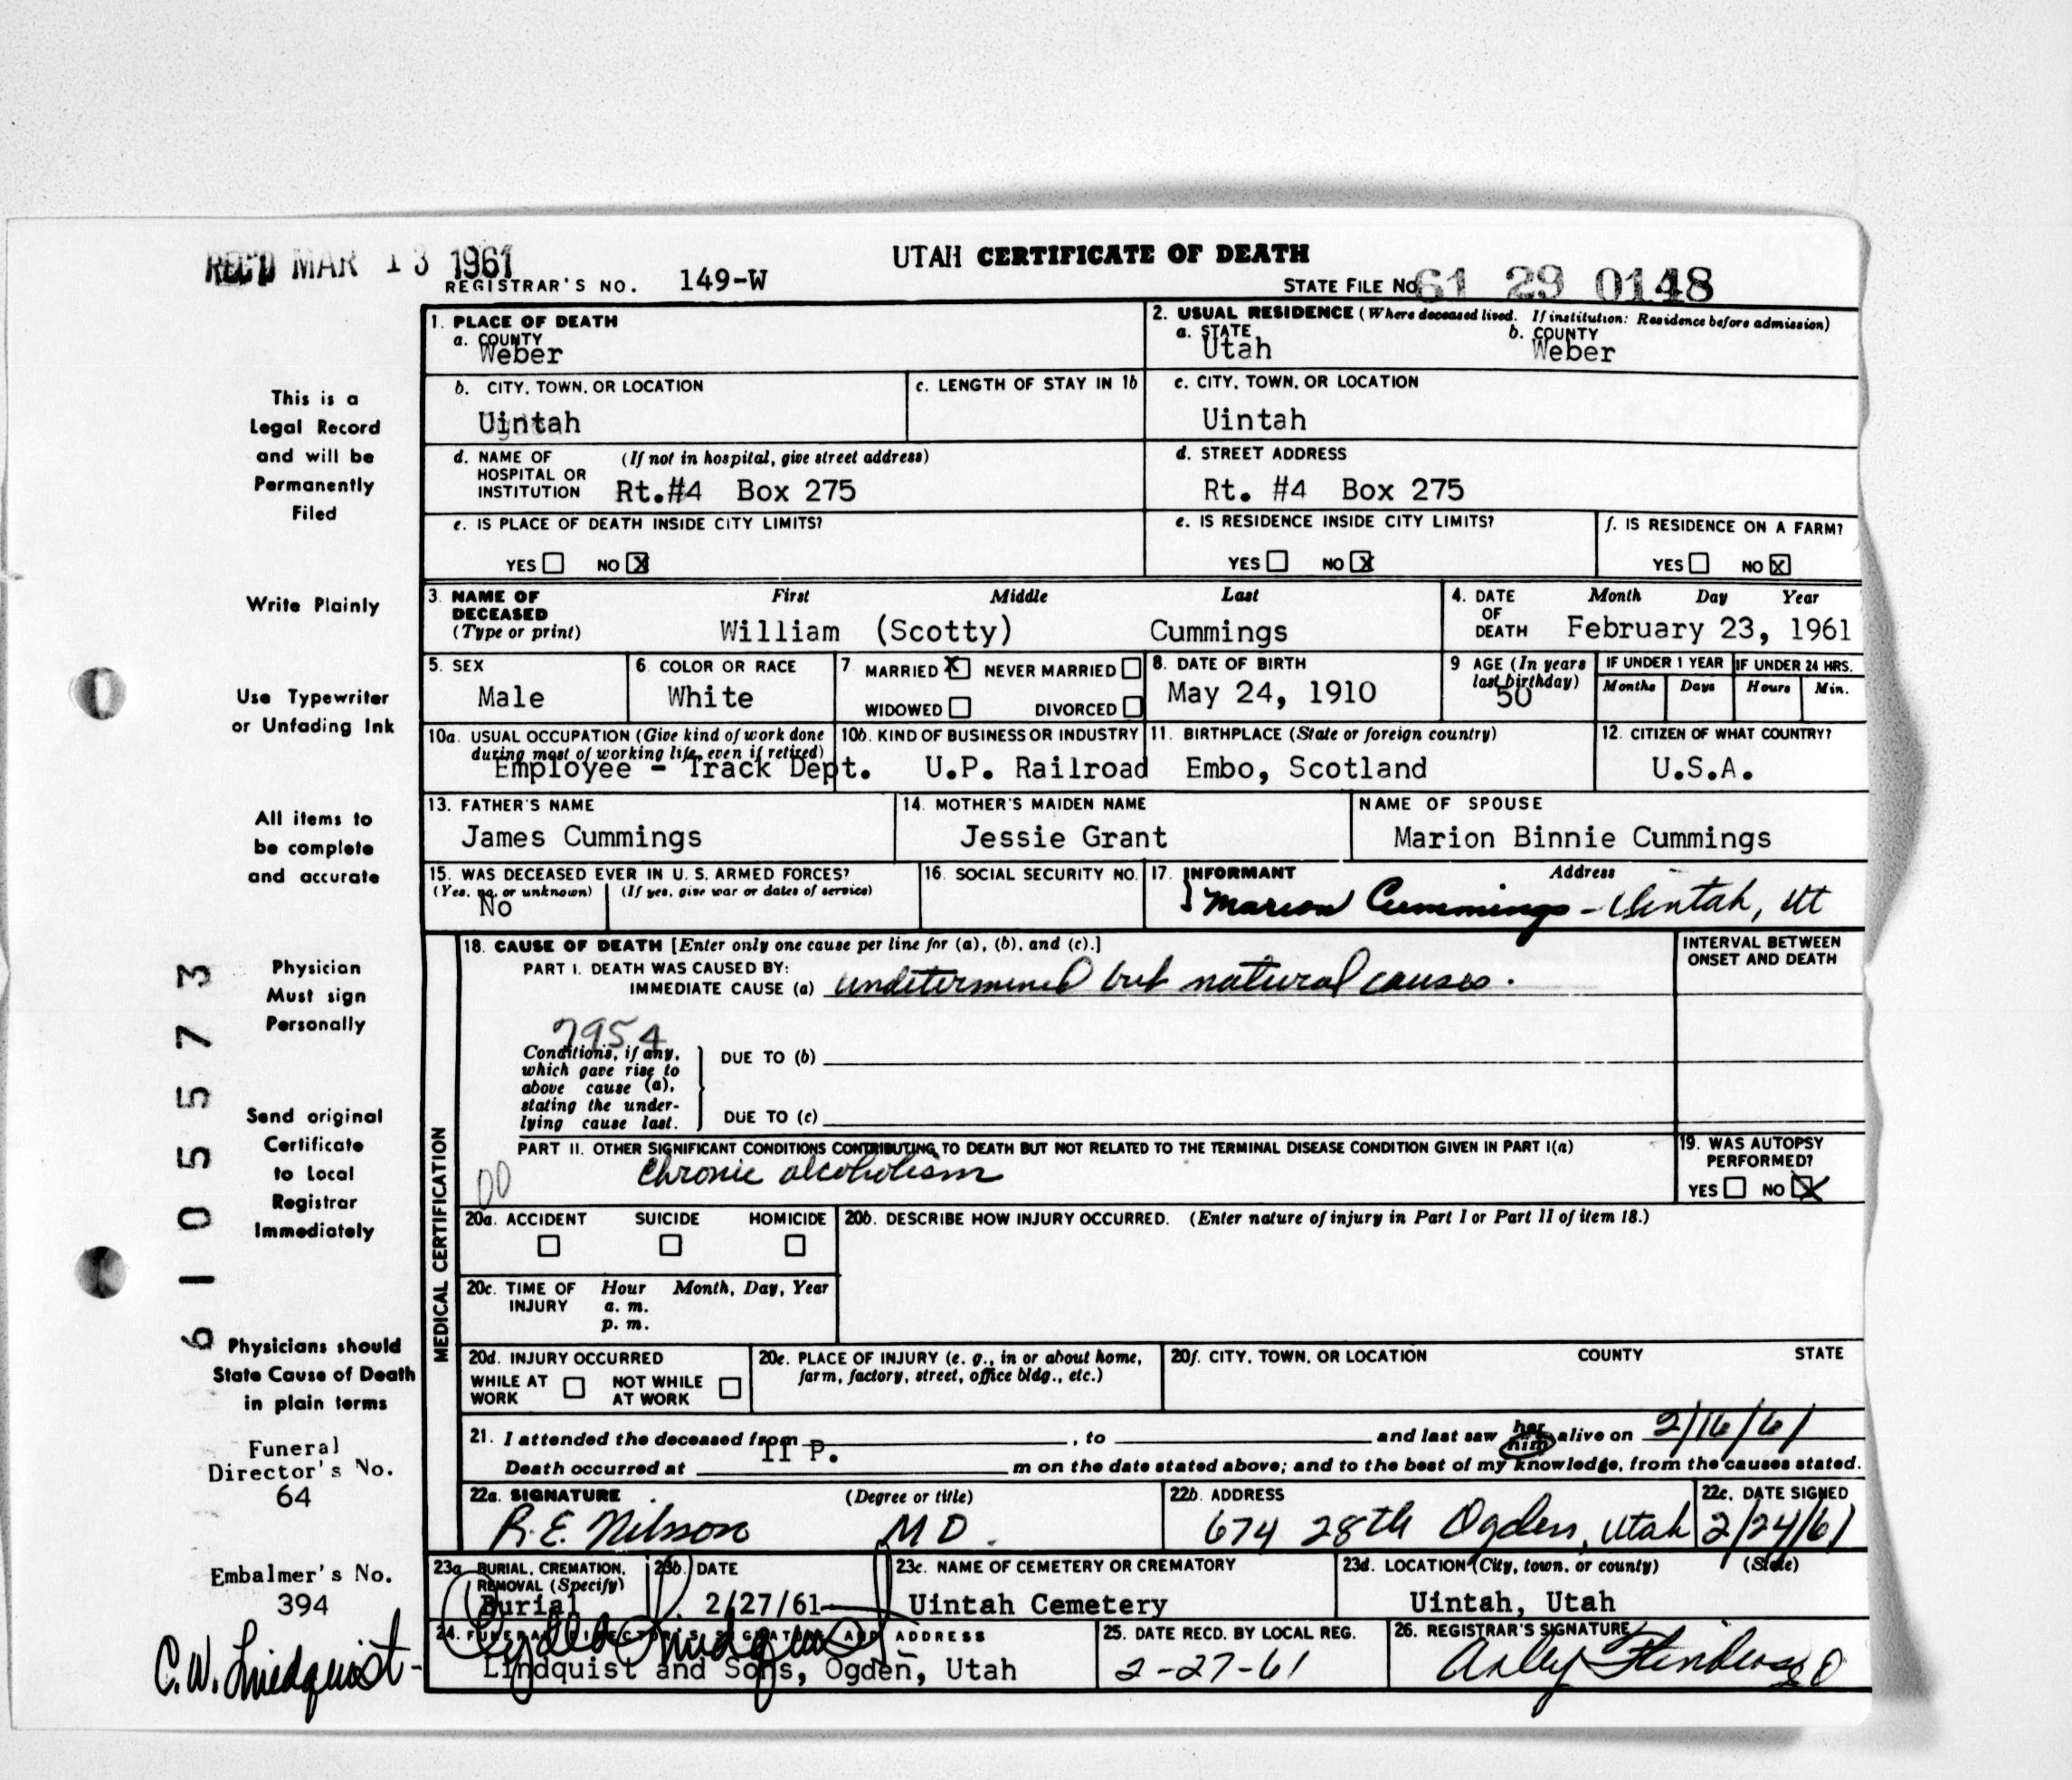 REC'D MAR 13 1961
UTAH CERTIFICATE OF DEATH
REGISTRAR'S NO. 149-W
STATE FILE NO. 61 29 0148
1. PLACE OF DEATH
a. COUNTY
Weber
2. USUAL RESIDENCE (Where deceased lived. If institution: Residence before admission)
a. STATE b. COUNTY
Utah Weber
b. CITY, TOWN, OR LOCATION
Uintah
c. LENGTH OF STAY IN 1b
c. CITY, TOWN, OR LOCATION
Uintah
d. NAME OF (If not in hospital, give street address)
HOSPITAL OR
INSTITUTION Rt.#4 Box 275
d. STREET ADDRESS
Rt. #4 Box 275
e. IS PLACE OF DEATH INSIDE CITY LIMITS?
YES NO X
e. IS RESIDENCE INSIDE CITY LIMITS?
YES NO X
f. IS RESIDENCE ON A FARM?
YES NO X
3. NAME OF First Middle Last
DECEASED
(Type or print) William (Scotty) Cummings
4. DATE Month Day Year
OF
DEATH February 23, 1961
5. SEX
Male
6. COLOR OR RACE
White
7 MARRIED X NEVER MARRIED
WIDOWED DIVORCED
8. DATE OF BIRTH
May 24, 1910
9 AGE (In years
last birthday)
50
IF UNDER 1 YEAR IF UNDER 24 HRS.
Months Days Hours Min.
10a. USUAL OCCUPATION (Give kind of work done
during most of working life, even if retired)
Employee - Track Dept.
10b. KIND OF BUSINESS OR INDUSTRY
U.P. Railroad
11. BIRTHPLACE (State or foreign country)
Embo, Scotland
12. CITIZEN OF WHAT COUNTRY?
U.S.A.
13. FATHER'S NAME
James Cummings
14. MOTHER'S MAIDEN NAME
Jessie Grant
NAME OF SPOUSE
Marion Binnie Cummings
15. WAS DECEASED EVER IN U. S. ARMED FORCES?
(Yes, no, or unknown) (If yes, give war or dates of service)
No
16. SOCIAL SECURITY NO.
17. INFORMANT Address
Marion Cummings - Uintah, Ut
MEDICAL CERTIFICATION
18. CAUSE OF DEATH [Enter only one cause per line for (a), (b), and (c).]
PART I. DEATH WAS CAUSED BY:
IMMEDIATE CAUSE (a) undetermined but natural causes.
INTERVAL BETWEEN
ONSET AND DEATH
7954
Conditions, if any,
which gave rise to
above cause (a),
stating the under-
lying cause last.
DUE TO (b)
DUE TO (c)
PART II. OTHER SIGNIFICANT CONDITIONS CONTRIBUTING TO DEATH BUT NOT RELATED TO THE TERMINAL DISEASE CONDITION GIVEN IN PART I(a)
00 Chronic alcoholism
19. WAS AUTOPSY
PERFORMED?
YES NO X
20a. ACCIDENT SUICIDE HOMICIDE
20b. DESCRIBE HOW INJURY OCCURRED. (Enter nature of injury in Part I or Part II of item 18.)
20c. TIME OF Hour Month, Day, Year
INJURY a. m.
p. m.
20d. INJURY OCCURRED
WHILE AT NOT WHILE
WORK AT WORK
20e. PLACE OF INJURY (e. g., in or about home,
farm, factory, street, office bldg., etc.)
20f. CITY, TOWN, OR LOCATION COUNTY STATE
21. I attended the deceased from , to and last saw her him alive on 2/16/61
Death occurred at 11 P. m on the date stated above; and to the best of my knowledge, from the causes stated.
22a. SIGNATURE (Degree or title)
R.E. Nilsson M D.
22b. ADDRESS
674 28th Ogden, Utah
22c. DATE SIGNED
2/24/61
23a BURIAL, CREMATION,
REMOVAL (Specify)
Burial
23b. DATE
2/27/61
23c. NAME OF CEMETERY OR CREMATORY
Uintah Cemetery
23d. LOCATION (City, town, or county) (State)
Uintah, Utah
24. FUNERAL DIRECTOR'S SIGNATURE AND ADDRESS
Lindquist and Sons, Ogden, Utah
25. DATE RECD. BY LOCAL REG.
2-27-61
26. REGISTRAR'S SIGNATURE
This is a
Legal Record
and will be
Permanently
Filed
Write Plainly
Use Typewriter
or Unfading Ink
All items to
be complete
and accurate
Physician
Must sign
Personally
Send original
Certificate
to Local
Registrar
Immediately
Physicians should
State Cause of Death
in plain terms
Funeral
Director's No.
64
Embalmer's No.
394
C.W. Lindquist
6105573